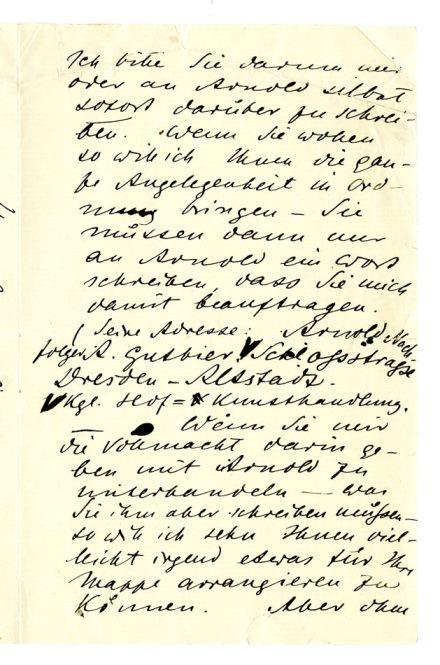 Ich bitte Sie darum mir
oder an Arnold selbst
sofort darüber zu schrei-
ben. Wenn Sie wollen
so will ich Ihnen die gan-
ze Angelegenheit in Ord-
nung bringen – Sie
müssen dann nur
an Arnold ein Wort
schreiben, dass Sie mich
damit beauftragen.
(Seine Adresse: Arnold Nach-
folger A. Gutbier Schlossstrasse
Dresden – Altstadt.
Kgl. Hof = Kunsthandlung.
Wenn Sie mir
die Vollmacht darin ge-
ben mit Arnold zu
unterhandeln — was
Sie ihm aber schreiben müssen –
so will ich sehn Ihnen viel-
leicht irgend etwas für Ihre
Mappe arrangieren zu
können. Aber ohne